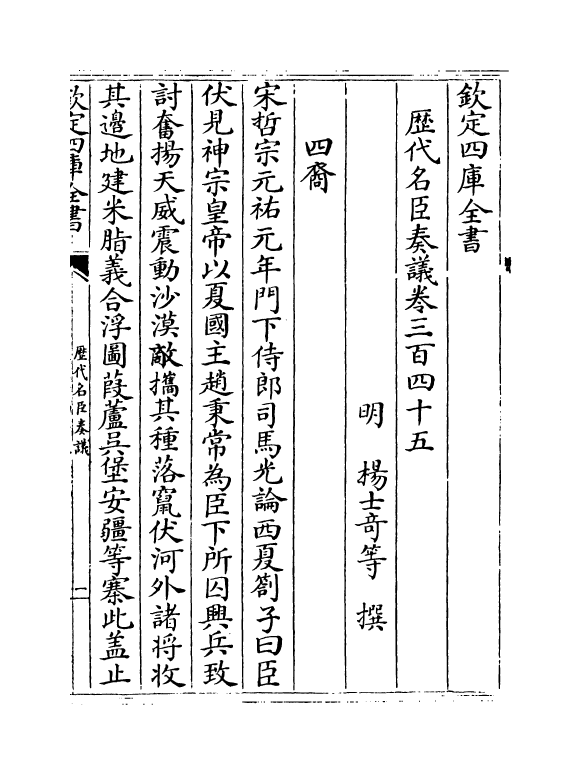 欽定四庫全書
歴代名臣奏議卷三百四十五
明　楊士竒等　撰
四裔
宋哲宗元祐元年門下侍郎司馬光論西夏劄子曰臣
伏見神宗皇帝以夏國主趙秉常為臣下所囚興兵致
討奮揚天威震動沙漠敵攜其種落竄伏河外諸将收
其邊地建米脂義合浮圖葭蘆吳堡安疆等寨此盖止
欽定四庫全書
歴代名臣奏議